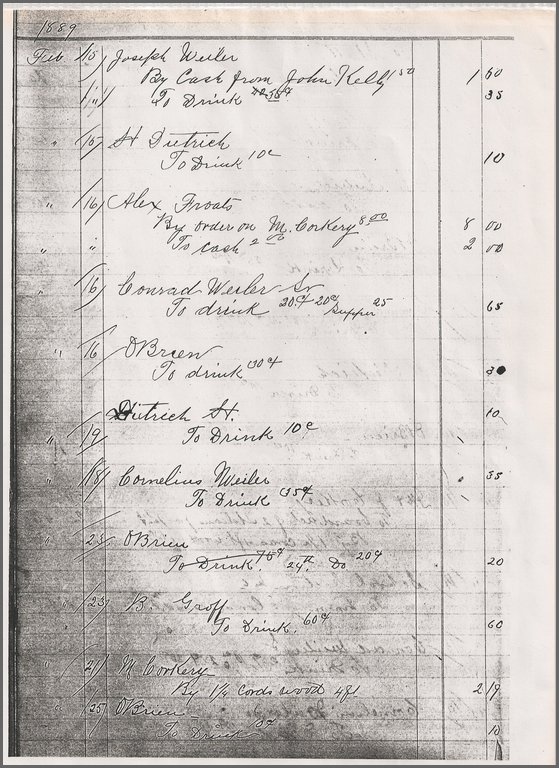 1889
Feb 15 Joseph Weiler
By Cash from John Kelly 1 50 1 60
" 11 To Drink 35¢ 35
" 15 H Dietrich
To Drink 10c 10
" 16 Alex Froats
By order on M. Corkery 8.00 8 00
" " To Cash 2 00 2 00
" 16 Conrad Weiler Sr
To drink 20¢ 20¢ Supper 25 65
" 16 OBrien
To drink 30¢
Dietrich H. 10
" 19 To Drink 10c
" 18 Cornelius Weiler 35
To Drink 35¢
" 23 OBrien
To Drink. 24th Do 20¢ 20
" 23 B. Groff
To Drink. 60¢ 60
" 21 M Corkery
By 1¼ Cords wood 4ft 2 19
25 OBrien
To Drink 10